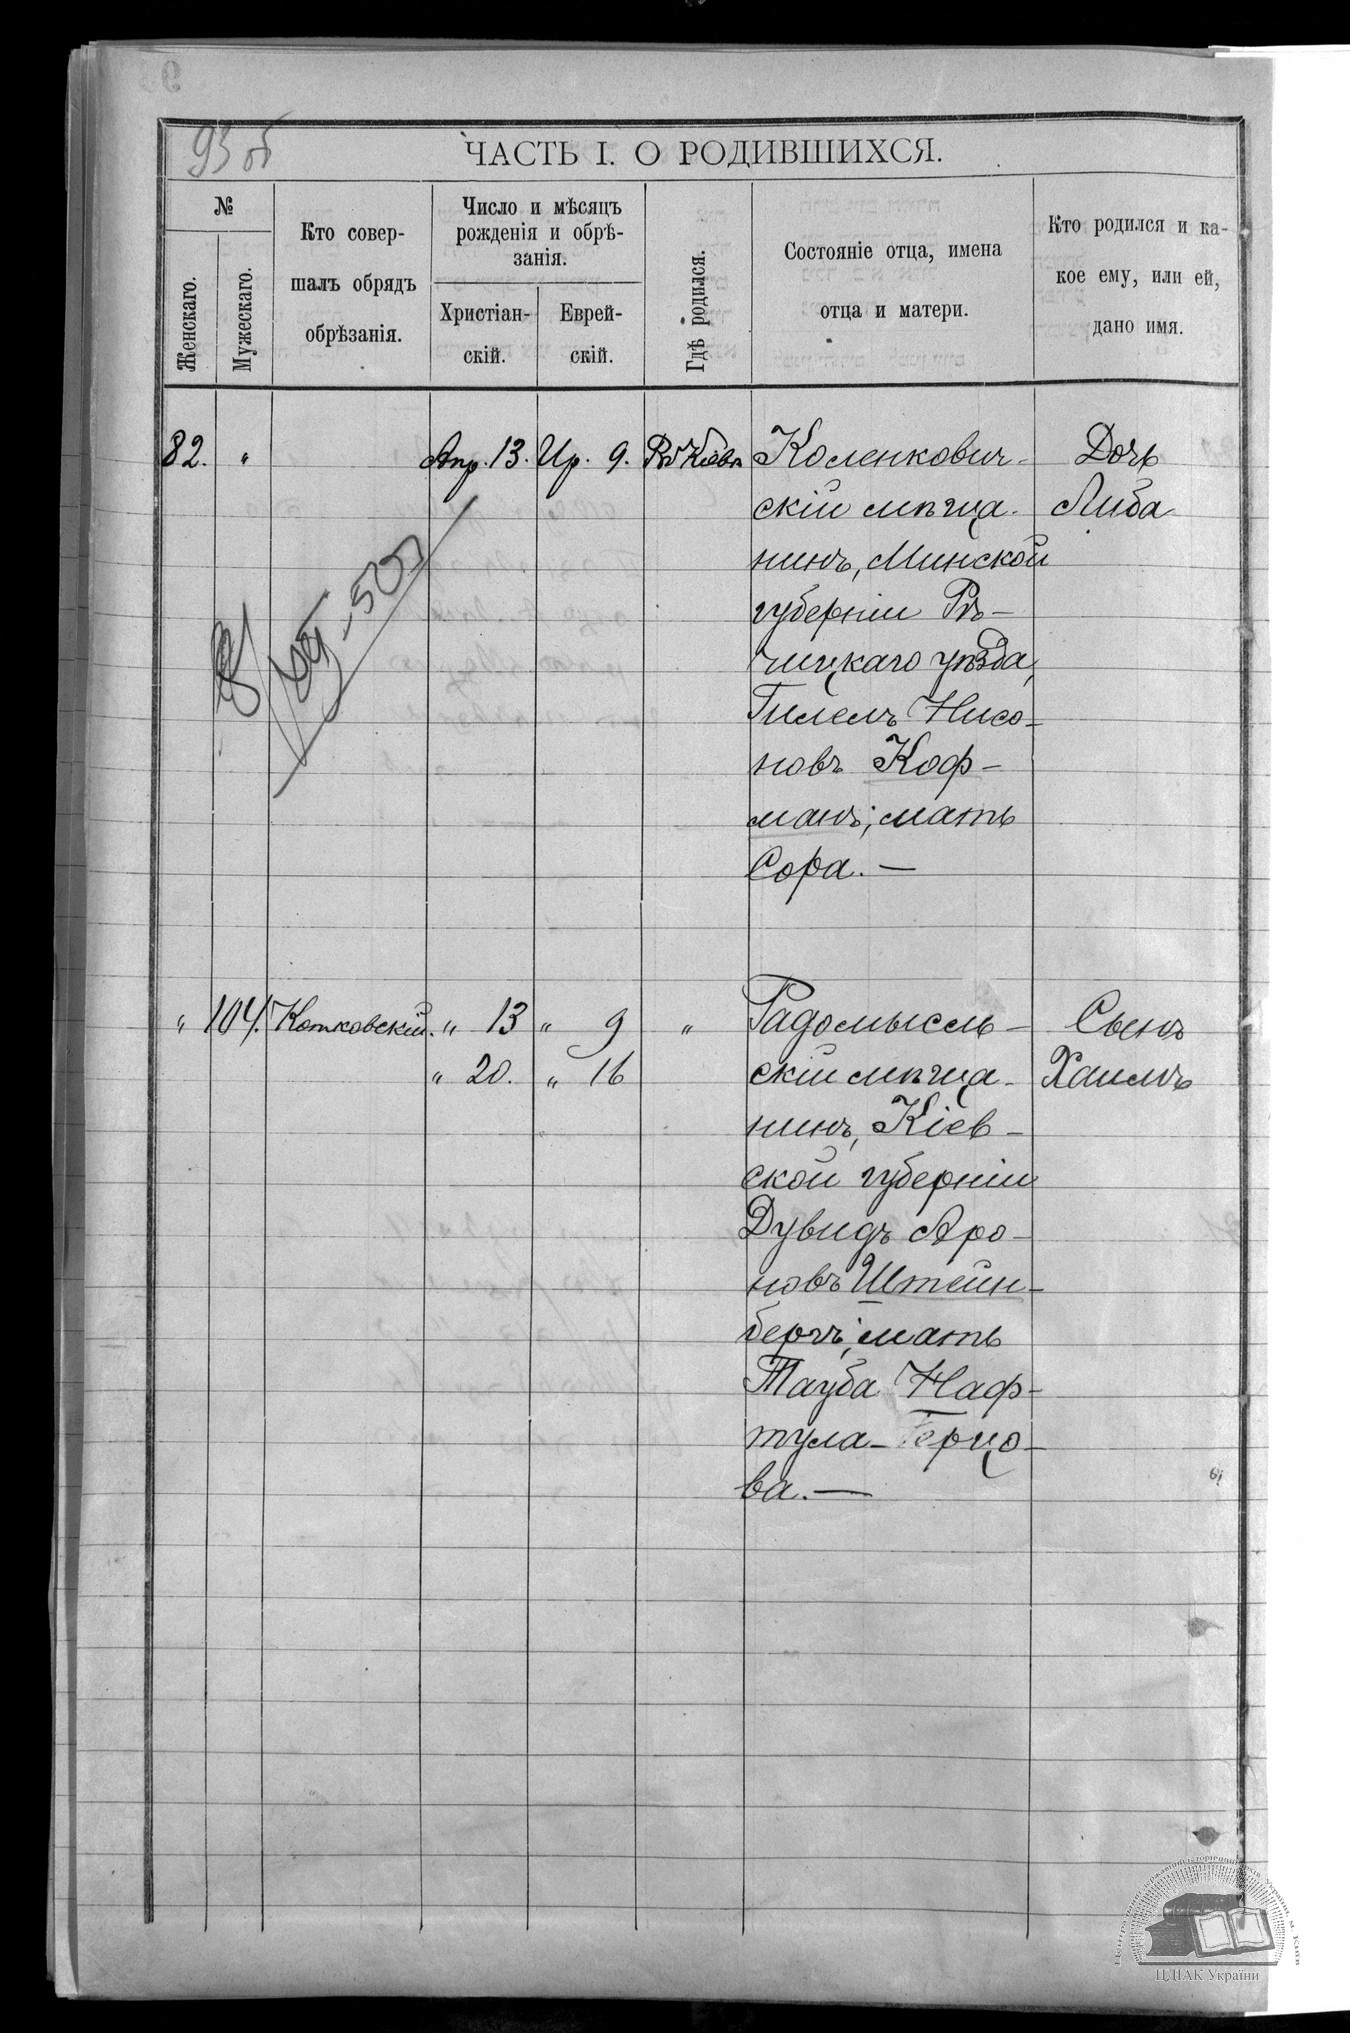 93 об
ЧАСТЬ I. О РОДИВШИХСЯ.
№
Женскаго.
Мужескаго.
Кто совер-
шалъ обрядъ
обрѣзанія.
Число и мѣсяцъ
рожденія и обрѣ-
занія.
Христіан-
скій.
Еврей-
скій.
Гдѣ родился.
Состояніе отца, имена
отца и матери.
Кто родился и ка-
кое ему, или ей,
дано имя.
82. " Апр. 13. Ир. 9. Въ Кіевѣ
Коленкович-
скій мѣща-
нинъ, Минской
губерніи Рѣ-
чицкаго уѣзда,
Гилелъ Нисо-
новъ Коф-
манъ; мать
Сора. —
Дочь
Либа
" 104. Котковскій. " 13 " 9 "
" 20. " 16
Радомысль-
скій мѣща-
нинъ, Кіев-
ской губерніи
Дувидъ Аро-
новъ Штейн-
бергъ; мать
Тауба Наф-
тула-Герцо-
ва. —
Сынъ
Хаимъ
ЦДІАК України